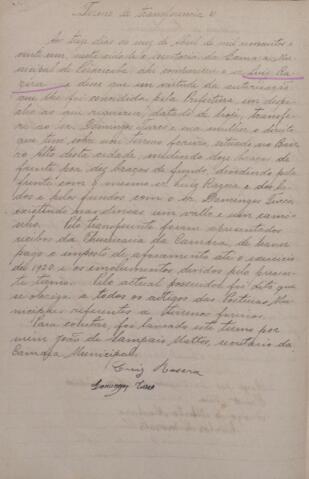 Termo de transferencia
Aos treze dias do mez de Abril de mil novecentos e
vinte um, nesta cidade e secretaria da Camara Mu-
nicipal de Piracicaba, ahi compareceu o sr. Luiz Ra-
zera e disse que em virtude da autorisação
que lhe foi concedida pela Prefeitura em despa-
cho ao qual requereu, datado de hoje, transfe-
re ao sr. Domingos Zucco e sua mulher o direito
que tem sobre um terreno foreiro, situado no Bair-
ro Alto desta cidade, medindo dez braças de
frente por dez braças de fundo, dividindo pela
frente com o mesmo sr. Luiz Razera e dos la-
dos e pelos fundos com o sr. Domingos Zucco,
existindo nas divisas um vallo e um cami-
nho. Pelo transferente foram apresentados
recibos da Thesouraria da Camara, de haver
pago o imposto de aforamento até o exercicio
de 1920 e os emolumentos devidos pelo presen-
te termo. Pelo actual possuidor foi dito que
se obriga a todos os artigos das Posturas Mu-
nicipaes referentes a terrenos foreiros.
Para constar, foi lavrado este termo por
mim João de Sampaio Mattos, secretario da
Camara Municipal.
Luiz Rasera
Domingos Zuco